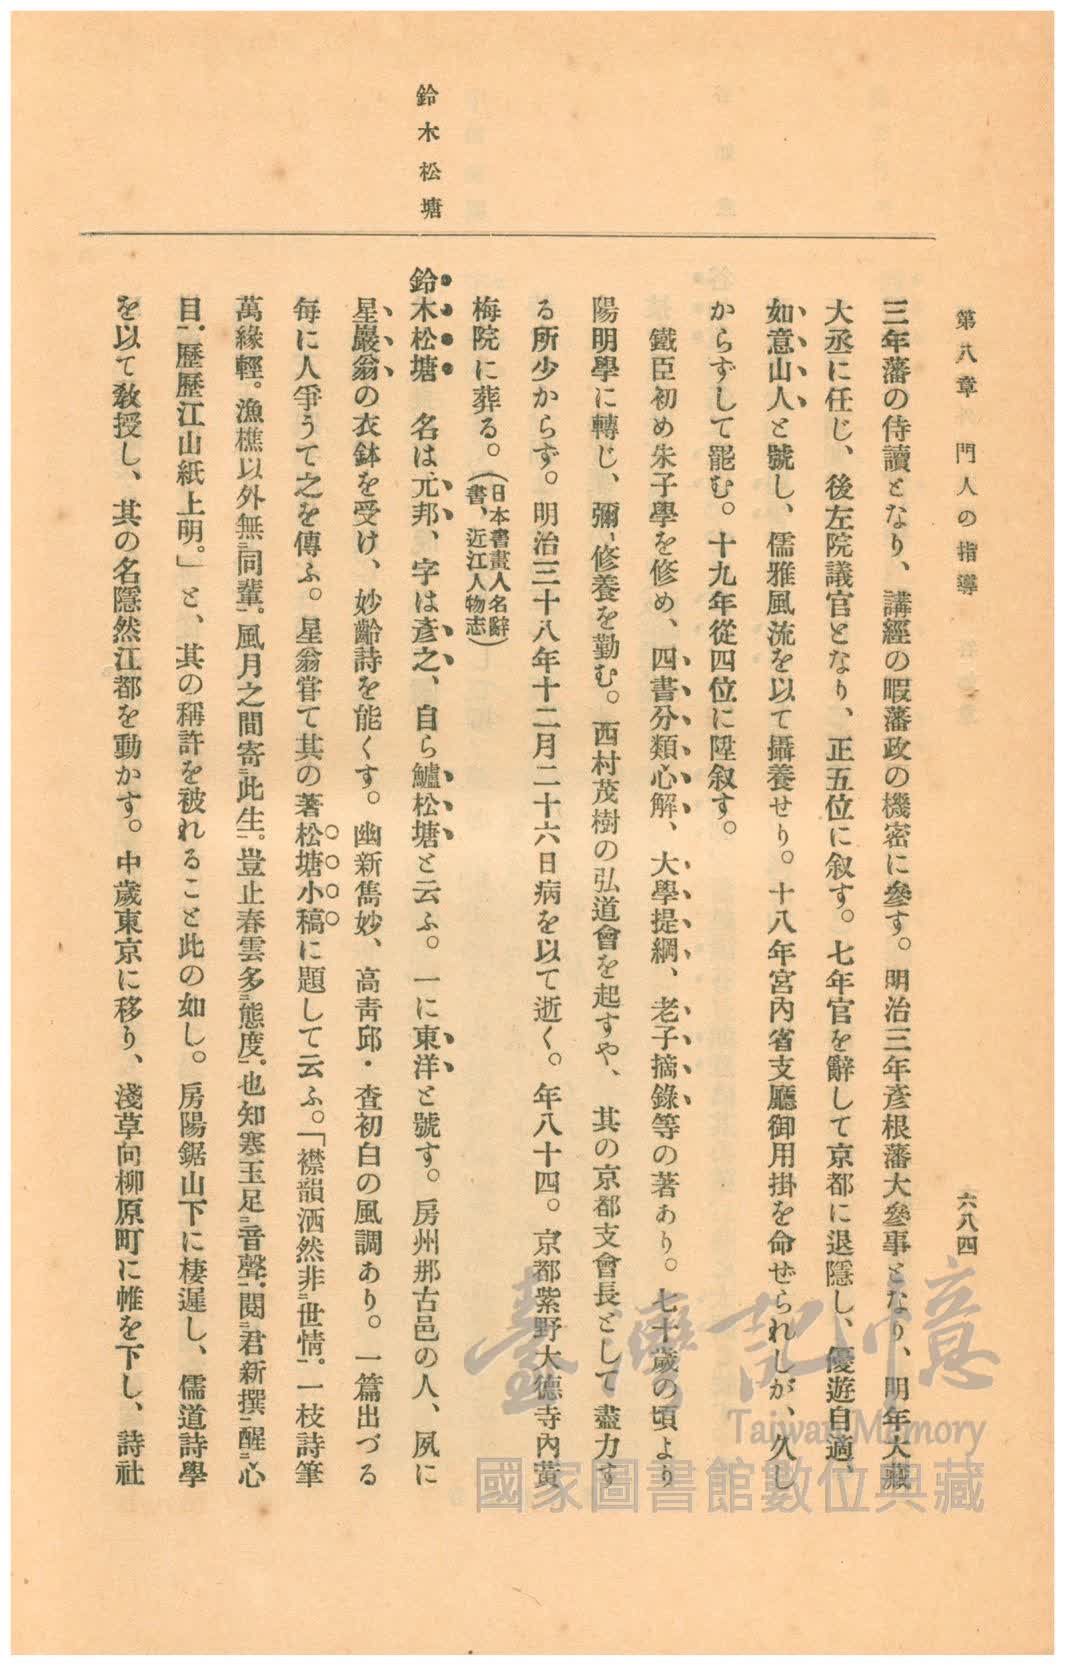 第八章 門人の指導
六八四
三年藩の侍讀となり、講經の暇藩政の機密に參す。明治三年彥根藩大參事となり、明年大藏
大丞に任じ、後左院議官となり、正五位に叙す。七年官を辭して京都に退隱し、優遊自適、
如意山人と號し、儒雅風流を以て攝養せり。十八年宮內省支廳御用掛を命ぜられしが、久し
からずして罷む。十九年從四位に陞叙す。
鐵臣初め朱子學を修め、四書分類心解、大學提綱、老子摘錄等の著あり。七十歲の頃より
陽明學に轉じ、彌〻修養を勤む。西村茂樹の弘道會を起すや、其の京都支會長として盡力す
る所少からず。明治三十八年十二月二十六日病を以て逝く。年八十四。京都紫野大德寺內黄
梅院に葬る。(日本書畫人名辭書、近江人物志)
鈴木松塘
鈴木松塘 名は元邦、字は彥之、自ら鱸松塘と云ふ。一に東洋と號す。房州那古邑の人、夙に
星巖翁の衣鉢を受け、妙齡詩を能くす。幽新雋妙、高靑邱・査初白の風調あり。一篇出づる
每に人爭うて之を傳ふ。星翁嘗て其の著松塘小稿に題して云ふ。「襟韻洒然非世情。一枝詩筆
萬緣輕。漁樵以外無同輩。風月之間寄此生。豈止春雲多態度。也知寒玉足音聲。閱君新撰醒心
目。歷歷江山紙上明。」と、其の稱許を被れること此の如し。房陽鋸山下に棲遲し、儒道詩學
を以て敎授し、其の名隱然江都を動かす。中歲東京に移り、淺草向柳原町に帷を下し、詩社
臺灣記憶
Taiwan Memory
國家圖書館數位典藏